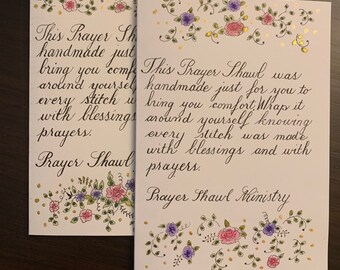 This Prayer Shawl
handmade just
bring you comf
around yoursel
every stitch w
with blessings
prayers.
Prayer Shawl
This Prayer Shawl was
handmade just for you to
bring you comfort. Wrap it
around yourself knowing
every stitch was made
with blessings and with
prayers.
Prayer Shawl Ministry